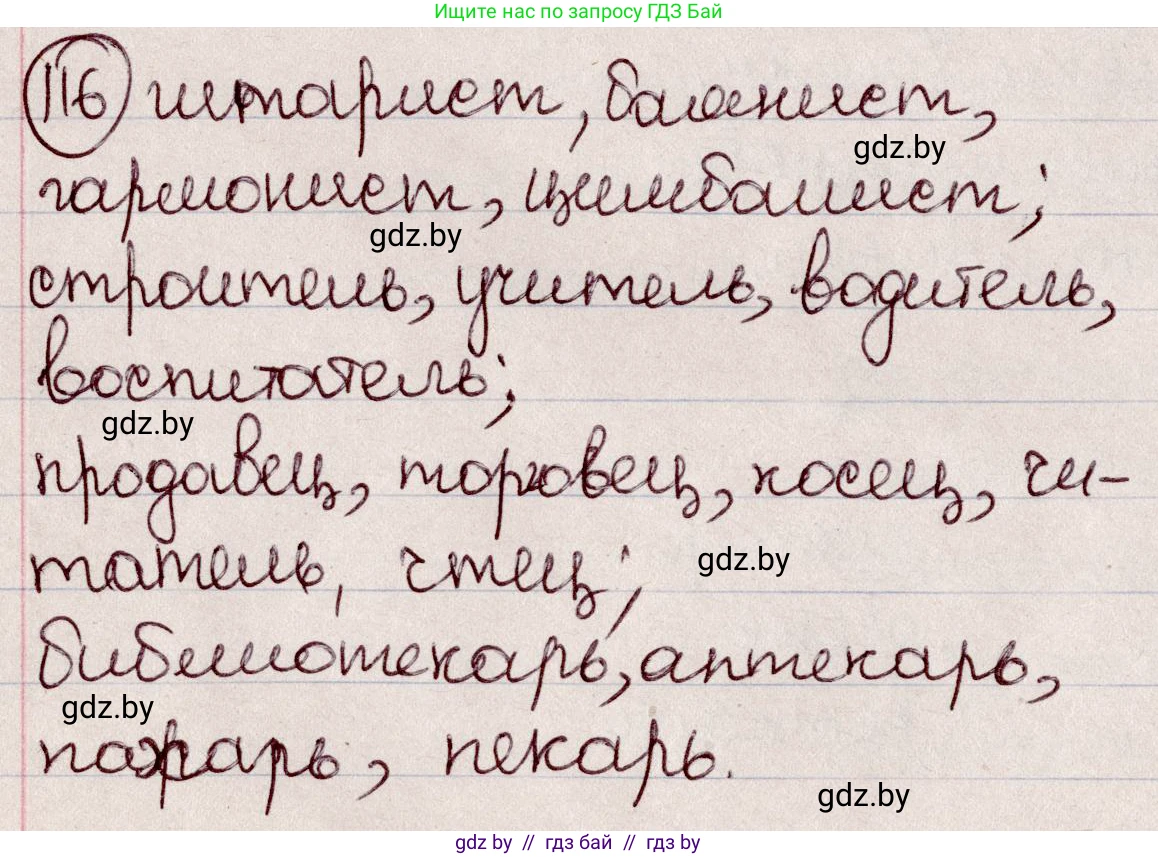 Ищите нас по запросу ГДЗ Бай
116 гитарист, баянист,
gdz.by
гармонист, цимбалист;
gdz.by
строитель, учитель, водитель,
воспитатель;
gdz.by
продавец, торговец, косец, чи-
татель, чтец;
gdz.by
библиотекарь, аптекарь,
gdz.by
пахарь, пекарь.
gdz.by
gdz by // гдз бай // гдз by